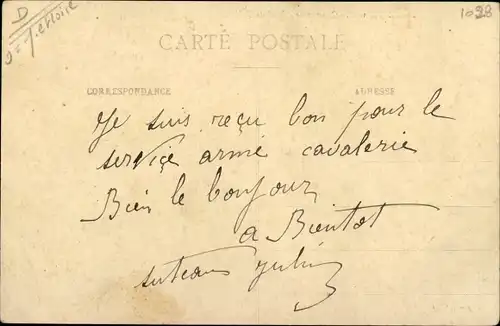 D
S.etLoire
1098
CARTE POSTALE
CORRESPONDANCE
ADRESSE
Je suis reçu bon pour le
service armé cavalerie
Bien le bonjour
a Bientot